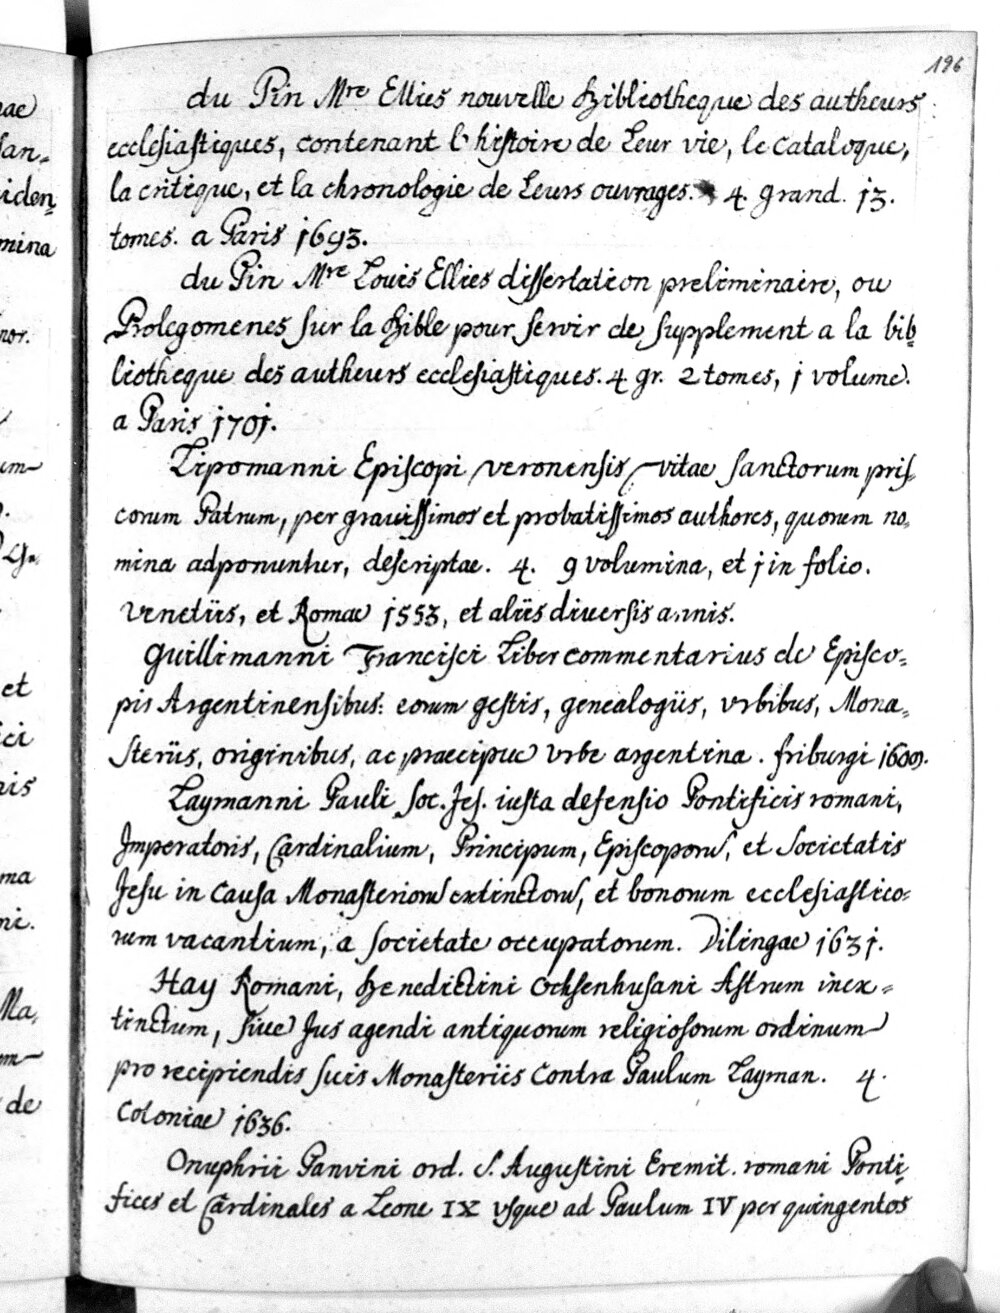 196
du Pin Mre Ellies nouvelle Bibliotheque des autheurs
ecclesiastiques, contenant l'histoire de Leur vie, le catalogue,
la critique, et la chronologie de Leurs ouvrages. 4. grand. 13.
tomes. a Paris 1693.
du Pin Mre Louis Ellies dissertation preliminaire, ou
Prolegomenes sur la Bible pour servir de supplement a la bib=
liotheque des autheurs ecclesiastiques. 4 gr. 2 tomes, 1 volume.
a Paris 1701.
Lipomanni Episcopi veronensis vitae sanctorum pris=
corum Patrum, per gravissimos et probatissimos authores, quorum no=
mina adponuntur, descriptae. 4. 9 volumina, et 1 in folio.
Venetiis, et Romae 1553, et aliis diversis annis.
Guillimanni Francisci Liber commentarius de Episco=
pis Argentinensibus: eorum gestis, genealogiis, urbibus, Mona=
steriis, originibus, ac praecipue urbe argentina. friburgi 1609.
Laymanni Pauli Soc. Jes. iusta defensio Pontificis romani,
Imperatoris, Cardinalium, Principum, Episcoporu, et Societatis
Jesu in causa Monasterioru extinctoru, et bonorum ecclesiastico=
rum vacantium, a societate occupatorum. Dilingae 1631.
Hay Romani, Benedictini Ochsenhusani Astrum inex=
tinctum, sive Jus agendi antiquorum religiosorum ordinum
pro recipiendis suis Monasteriis contra Paulum Layman. 4.
Coloniae 1636.
Onuphrii Panvini ord. S. Augustini Eremit. romani Ponti=
fices et Cardinales a Leone IX usque ad Paulum IV per quingentos
nae
san=
iden=
mina
nor.
um
et
ici
nis
ma
ni.
Ma=
m
de